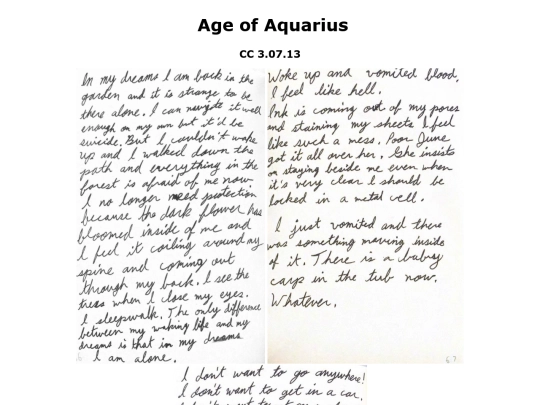 Age of Aquarius
CC 3.07.13
In my dreams I am back in the
garden and it is strange to be
there alone. I can navigate it well
enough on my own but it'd be
suicide. But I couldn't wake
up and I walked down the
path and everything in the
forest is afraid of me now
I no longer need protection
because the dark flower has
bloomed inside of me and
I feel it coiling around my
spine and coming out
through my back. I see the
trees when I close my eyes.
I sleepwalk. The only difference
between my waking life and my
dreams is that in my dreams
I am alone.
Woke up and vomited blood,
I feel like hell.
Ink is coming out of my pores
and staining my sheets I feel
like such a mess. Poor June
got it all over her. She insists
on staying beside me even when
it's very clear I should be
locked in a metal cell.
I just vomited and there
was something moving inside
of it. There is a baby
carp in the tub now.
Whatever.
67
I don't want to go anywhere!
I don't want to get in a car,